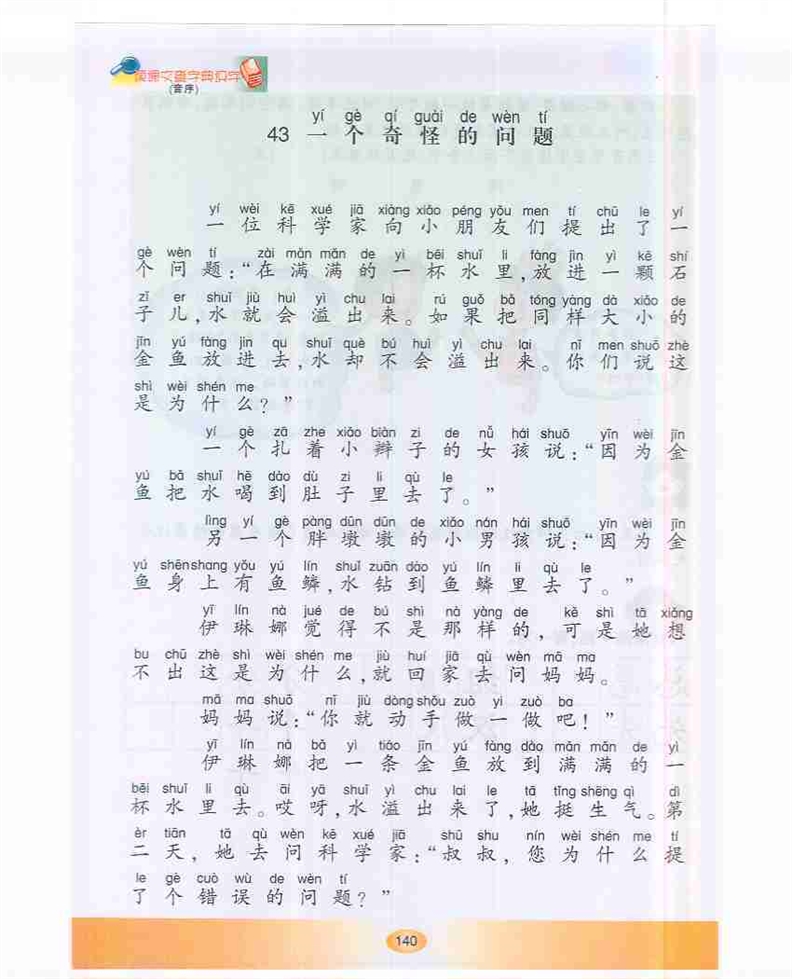 读课文查字典识字
(音序)
yí gè qí guài de wèn tí
43 一个奇怪的问题
yí wèi kē xué jiā xiàng xiǎo péng yǒu men tí chū le yí
一位科学家向小朋友们提出了一
gè wèn tí zài mǎn mǎn de yì bēi shuǐ li fàng jìn yì kē shí
个问题:“在满满的一杯水里,放进一颗石
zǐ er shuǐ jiù huì yì chu lai rú guǒ bǎ tóng yàng dà xiǎo de
子儿,水就会溢出来。如果把同样大小的
jīn yú fàng jìn qu shuǐ què bú huì yì chu lai nǐ men shuō zhè
金鱼放进去,水却不会溢出来。你们说这
shì wèi shén me
是为什么?”
yí gè zā zhe xiǎo biàn zi de nǚ hái shuō yīn wèi jīn
一个扎着小辫子的女孩说:“因为金
yú bǎ shuǐ hē dào dù zi li qù le
鱼把水喝到肚子里去了。”
lìng yí gè pàng dūn dūn de xiǎo nán hái shuō yīn wèi jīn
另一个胖墩墩的小男孩说:“因为金
yú shēn shang yǒu yú lín shuǐ zuān dào yú lín li qù le
鱼身上有鱼鳞,水钻到鱼鳞里去了。”
yī lín nà jué de bú shì nà yàng de kě shì tā xiǎng
伊琳娜觉得不是那样的,可是她想
bu chū zhè shì wèi shén me jiù huí jiā qù wèn mā ma
不出这是为什么,就回家去问妈妈。
mā ma shuō nǐ jiù dòng shǒu zuò yi zuò ba
妈妈说:“你就动手做一做吧!”
yī lín nà bǎ yì tiáo jīn yú fàng dào mǎn mǎn de yì
伊琳娜把一条金鱼放到满满的一
bēi shuǐ li qù āi yā shuǐ yì chu lai le tā tǐng shēng qì dì
杯水里去。哎呀,水溢出来了,她挺生气。第
èr tiān tā qù wèn kē xué jiā shū shu nín wèi shén me tí
二天,她去问科学家:“叔叔,您为什么提
le gè cuò wù de wèn tí
了个错误的问题?”
140